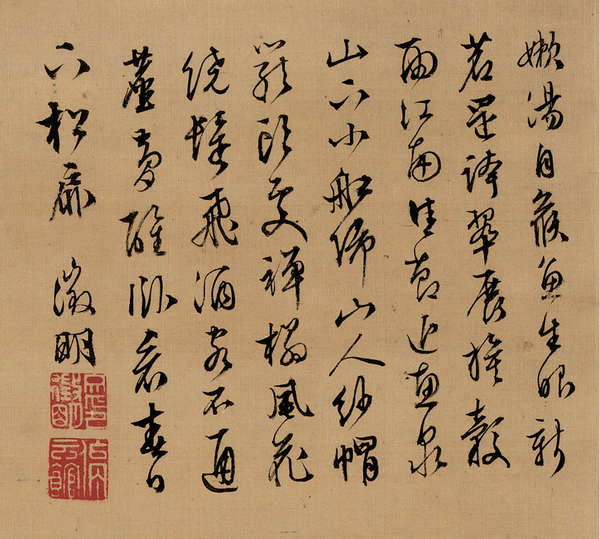 嫩湯自候魚生眼新
茗還誇翠展旗穀
雨江南佳節近惠泉
山下小船歸山人紗帽
籠頭處禪榻風花
繞鬢飛酒客不通
塵夢醒臥看春日
下松扉 徵明